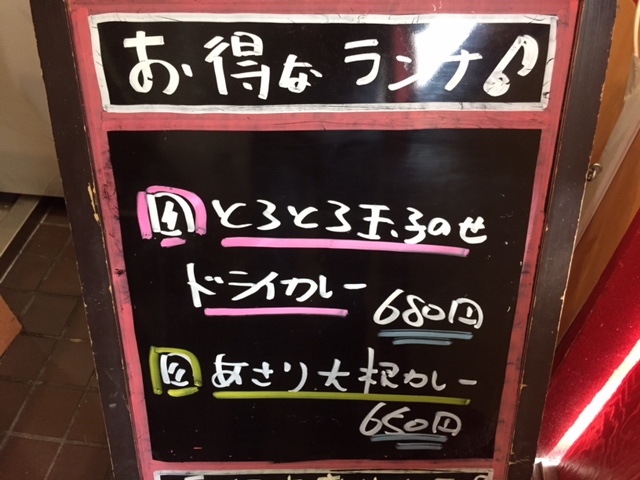 お得なランチ♪
とろとろ玉子のせ
ドライカレー
680円
あさり大根カレー
650円